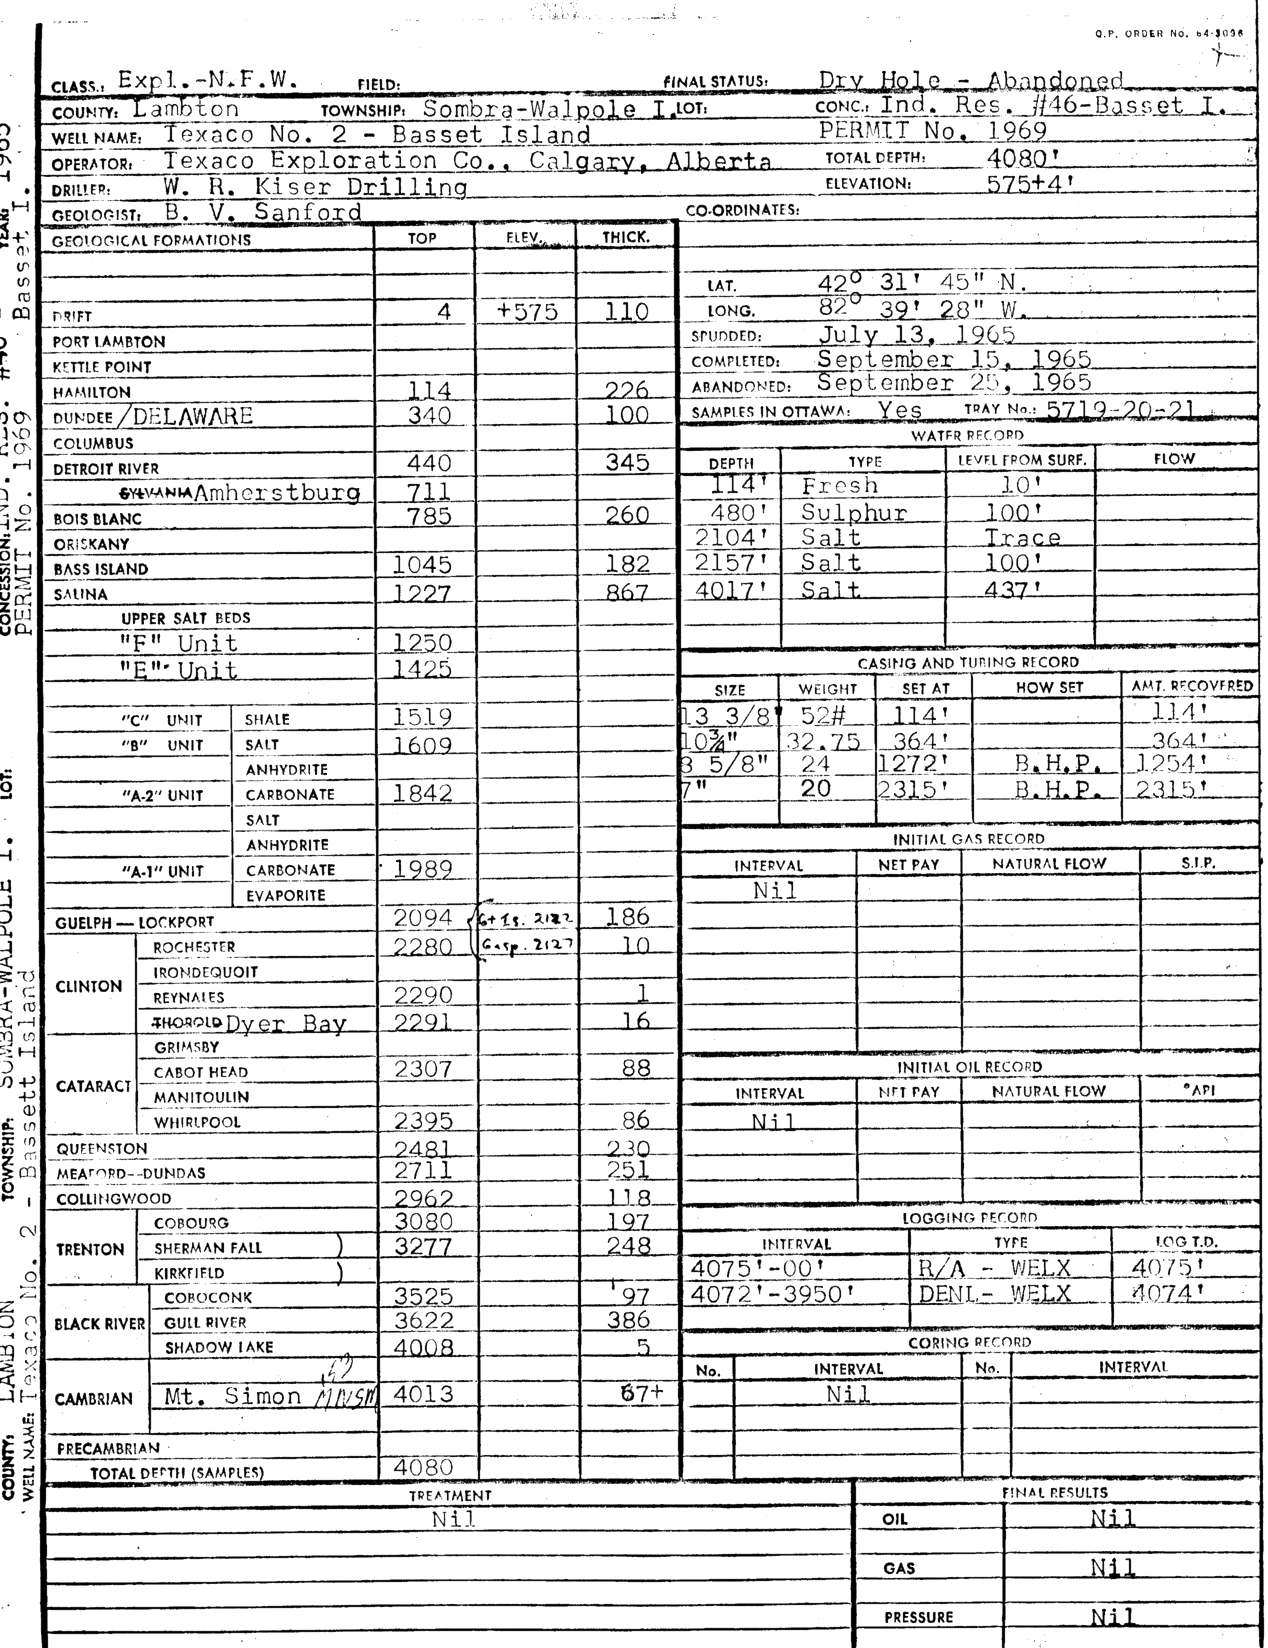 O.P. ORDER No. 64-3096
CLASS.: Expl.-N.F.W. FIELD: FINAL STATUS: Dry Hole - Abandoned
COUNTY: Lambton TOWNSHIP: Sombra-Walpole I. LOT: CONC.: Ind. Res. #46-Basset I.
WELL NAME: Texaco No. 2 - Basset Island PERMIT No. 1969
OPERATOR: Texaco Exploration Co., Calgary, Alberta TOTAL DEPTH: 4080'
DRILLER: W. R. Kiser Drilling ELEVATION: 575+4'
GEOLOGIST: B. V. Sanford CO-ORDINATES:
GEOLOGICAL FORMATIONS TOP ELEV. THICK.
DRIFT 4 +575 110
PORT LAMBTON
KETTLE POINT
HAMILTON 114 226
DUNDEE/DELAWARE 340 100
COLUMBUS
DETROIT RIVER 440 345
SYLVANIA Amherstburg 711
BOIS BLANC 785 260
ORISKANY
BASS ISLAND 1045 182
SALINA 1227 867
UPPER SALT BEDS
"F" Unit 1250
"E" Unit 1425
"C" UNIT SHALE 1519
"B" UNIT SALT 1609
ANHYDRITE
"A-2" UNIT CARBONATE 1842
SALT
ANHYDRITE
"A-1" UNIT CARBONATE 1989
EVAPORITE
GUELPH — LOCKPORT 2094 186
CLINTON ROCHESTER 2280 Gasp. 2127 10
IRONDEQUOIT
REYNALES 2290 1
THOROLD Dyer Bay 2291 16
CATARACT GRIMSBY
CABOT HEAD 2307 88
MANITOULIN
WHIRLPOOL 2395 86
QUEENSTON 2481 230
MEAFORD--DUNDAS 2711 251
COLLINGWOOD 2962 118
TRENTON COBOURG 3080 197
SHERMAN FALL ) 3277 248
KIRKFIELD )
BLACK RIVER COBOCONK 3525 97
GULL RIVER 3622 386
SHADOW LAKE 4008 5
CAMBRIAN Mt. Simon MNSM 4013 67+
PRECAMBRIAN
TOTAL DEPTH (SAMPLES) 4080
LAT. 42° 31' 45" N.
LONG. 82° 39' 28" W.
SPUDDED: July 13, 1965
COMPLETED: September 15, 1965
ABANDONED: September 25, 1965
SAMPLES IN OTTAWA: Yes TRAY No.: 5719-20-21
WATER RECORD
DEPTH TYPE LEVEL FROM SURF. FLOW
114' Fresh 10'
480' Sulphur 100'
2104' Salt Trace
2157' Salt 100'
4017' Salt 437'
CASING AND TUBING RECORD
SIZE WEIGHT SET AT HOW SET AMT. RECOVERED
13 3/8" 52# 114' 114'
10¾" 32.75 364' 364'
8 5/8" 24 1272' B.H.P. 1254'
7" 20 2315' B.H.P. 2315'
INITIAL GAS RECORD
INTERVAL NET PAY NATURAL FLOW S.I.P.
Nil
INITIAL OIL RECORD
INTERVAL NET PAY NATURAL FLOW °API
Nil
LOGGING RECORD
INTERVAL TYPE LOG T.D.
4075'-00' R/A - WELX 4075'
4072'-3950' DENL- WELX 4074'
CORING RECORD
No. INTERVAL No. INTERVAL
Nil
TREATMENT
Nil
FINAL RESULTS
OIL Nil
GAS Nil
PRESSURE Nil
COUNTY: LAMBTON TOWNSHIP: SOMBRA-WALPOLE I. LOT: CONCESSION: IND. RES. #46 - Basset I. YEAR: 1965
WELL NAME: Texaco No. 2 - Bassett Island PERMIT No. 1969